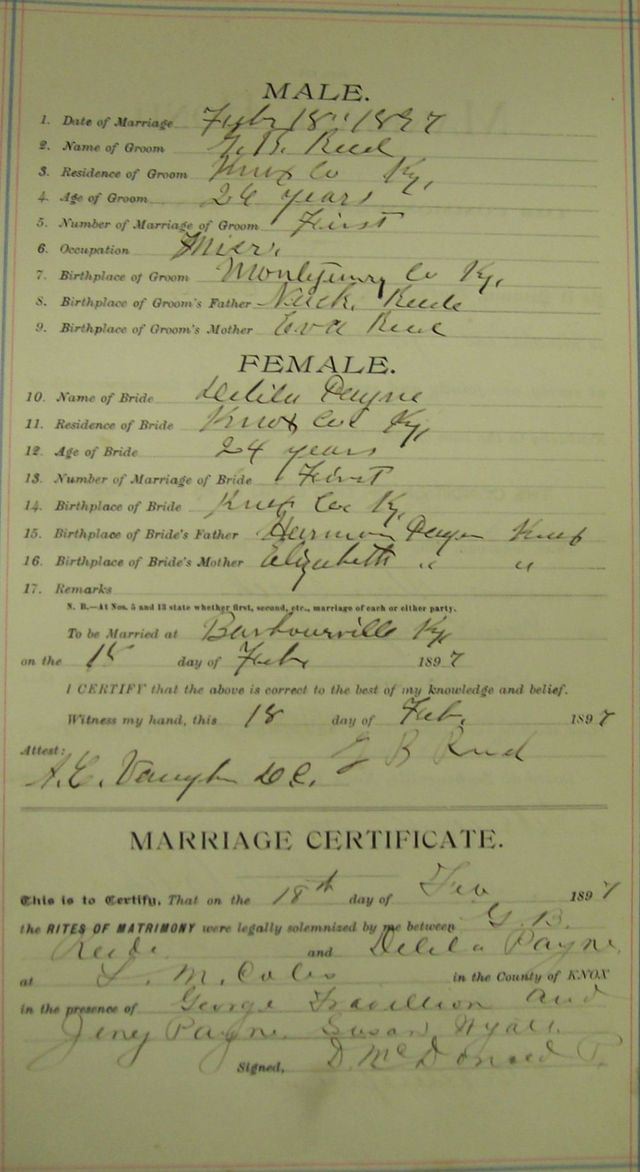 MALE.
1. Date of Marriage Feby 18" 1897
2. Name of Groom G. B. Reed
3. Residence of Groom Knox Co Ky,
4. Age of Groom 26 years
5. Number of Marriage of Groom First
6. Occupation
7. Birthplace of Groom Montgomery Co Ky,
8. Birthplace of Groom's Father Nick Reede
9. Birthplace of Groom's Mother Eva
FEMALE.
10. Name of Bride Delila Payne
11. Residence of Bride Knox Co Ky,
12. Age of Bride 24 years
13. Number of Marriage of Bride First
14. Birthplace of Bride Knox Co Ky
15. Birthplace of Bride's Father Harmon Payne Knox
16. Birthplace of Bride's Mother Elizabeth " "
17. Remarks
N. B.—At Nos. 5 and 13 state whether first, second, etc., marriage of each or either party.
To be Married at Barbourville Ky
on the 18 day of Feb, 1897
I CERTIFY that the above is correct to the best of my knowledge and belief.
Witness my hand, this 18 day of Feb, 1897
Attest: G B Reed
A. E. Vaughn D C.
MARRIAGE CERTIFICATE.
This is to Certify, That on the 18th day of Feb 1897
the RITES OF MATRIMONY were legally solemnized by me between G. B.
Reede and Delila Payne
at L. M. Coles in the County of KNOX
in the presence of George Travillion and
Jeny Payne. Susan Wyatt.
Signed, D. McDonald